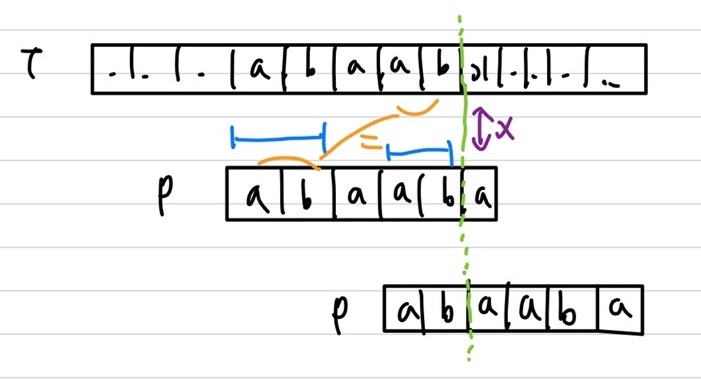 T . . . a b a a b x . . . ..
x
=
P a b a a b a
P a b a a b a